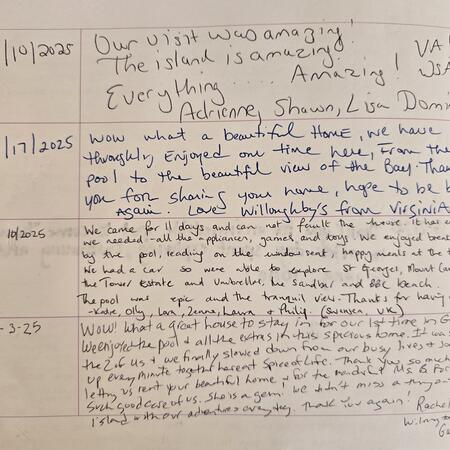 /10/2025
Our visit was amazing!
The island is amazing.
VA
Everything .... Amazing!
USA
Adrienne, Shawn, Lisa Domi
/17/2025
Wow what a beautiful Home, we have
throughly Enjoyed our time here, From the
pool to the beautiful view of the Bay. Than
you for sharing your home, hope to be b
Again. Love Willoughby's from Virginia
10/2025
We came for 11 days and can not fault the house. It has e
we needed - all the appliances, games and toys. We enjoyed brea
by the pool, reading on the window seat, happy meals at the t
We had a car so were able to explore St Georges, Mount Car
the Tower Estate and Umbrellas, the Sandbar and BBC beach.
The pool was epic and the tranquil view. Thanks for having
- Katie, Olly, Lara, Jenna, Laura & Philip. (Swansea, UK)
- 3-25
Wow! What a great house to stay in for our 1st time in G
We enjoyed the pool & all the extras in this spacious home. It wa
the 2 of us & we finally slowed down from our busy lives & so
up every minute together on Spice of Life. Thank you so much
letting us rent your beautiful home & for the Ms. B. For
such good care of us. She is a gem! We didn't miss a thing on
island with our adventures everyday. Thank you again! Rache
Wilming
Ge